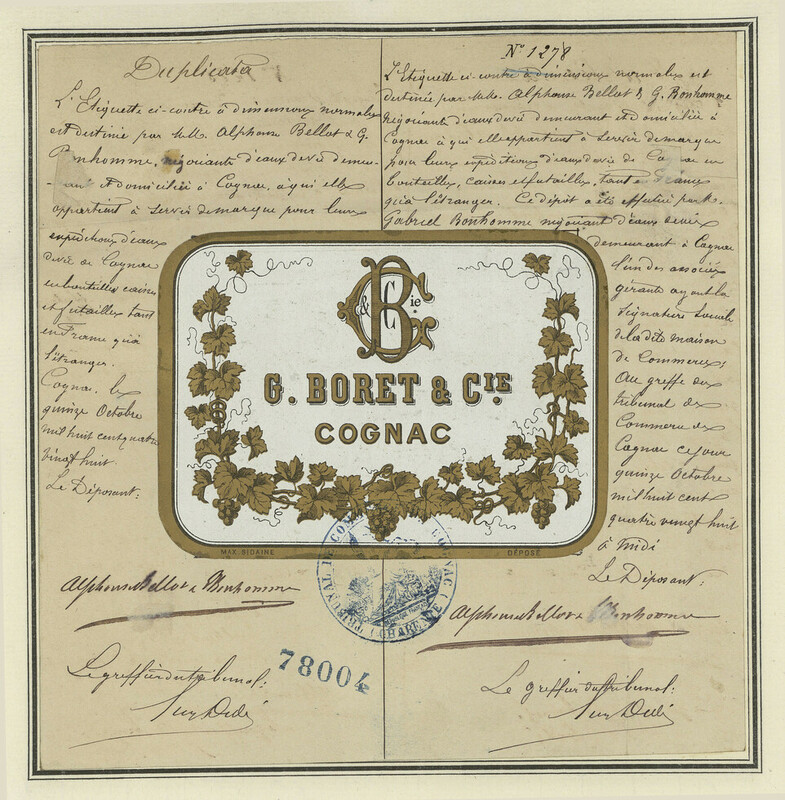 Duplicata
L'Etiquette ci-contre à dimensions normales
est destinée par M.M. Alphonse Bellot & G.
Bonhomme, négociants d'eaux de vie demeu-
-rant et domiciliés à Cognac, à qui elle
appartient à servir de marque pour leurs
expéditions d'eaux
de vie de Cognac
en bouteilles caisses
et futailles tant
en France qu'à
l'étranger.
Cognac, le
quinze Octobre
mil huit cent quatre
vingt huit.
Le Déposant:
Alphonse Bellot & Bonhomme
Le greffier du tribunal:
N° 1278
L'Etiquette ci-contre à dimensions normales est
destinée par M.M. Alphonse Bellot & G. Bonhomme
négociants d'eaux de vie demeurant et domiciliés à
Cognac à qui elle appartient à servir de marque
pour leurs expéditions d'eaux de vie de Cognac en
bouteilles, caisses et futailles, tant en France
qu'à l'étranger. Ce dépôt a été effectué par M.
Gabriel Bonhomme négociant d'eaux de vie
demeurant à Cognac
l'un des associés
gérants ayant la
signature sociale
de la dite maison
de Commerce,
Au greffe du
tribunal de
Commerce de
Cognac ce jour
quinze Octobre
mil huit cent
quatre vingt huit
à midi
Le Déposant:
Alphonse Bellot & Bonhomme
Le greffier du tribunal:
B G & C ie
G. BORET & CIE.
COGNAC
MAX SIDAINE
DÉPOSÉ
TRIBUNAL DE COM COGNAC (CHARENTE)
78004